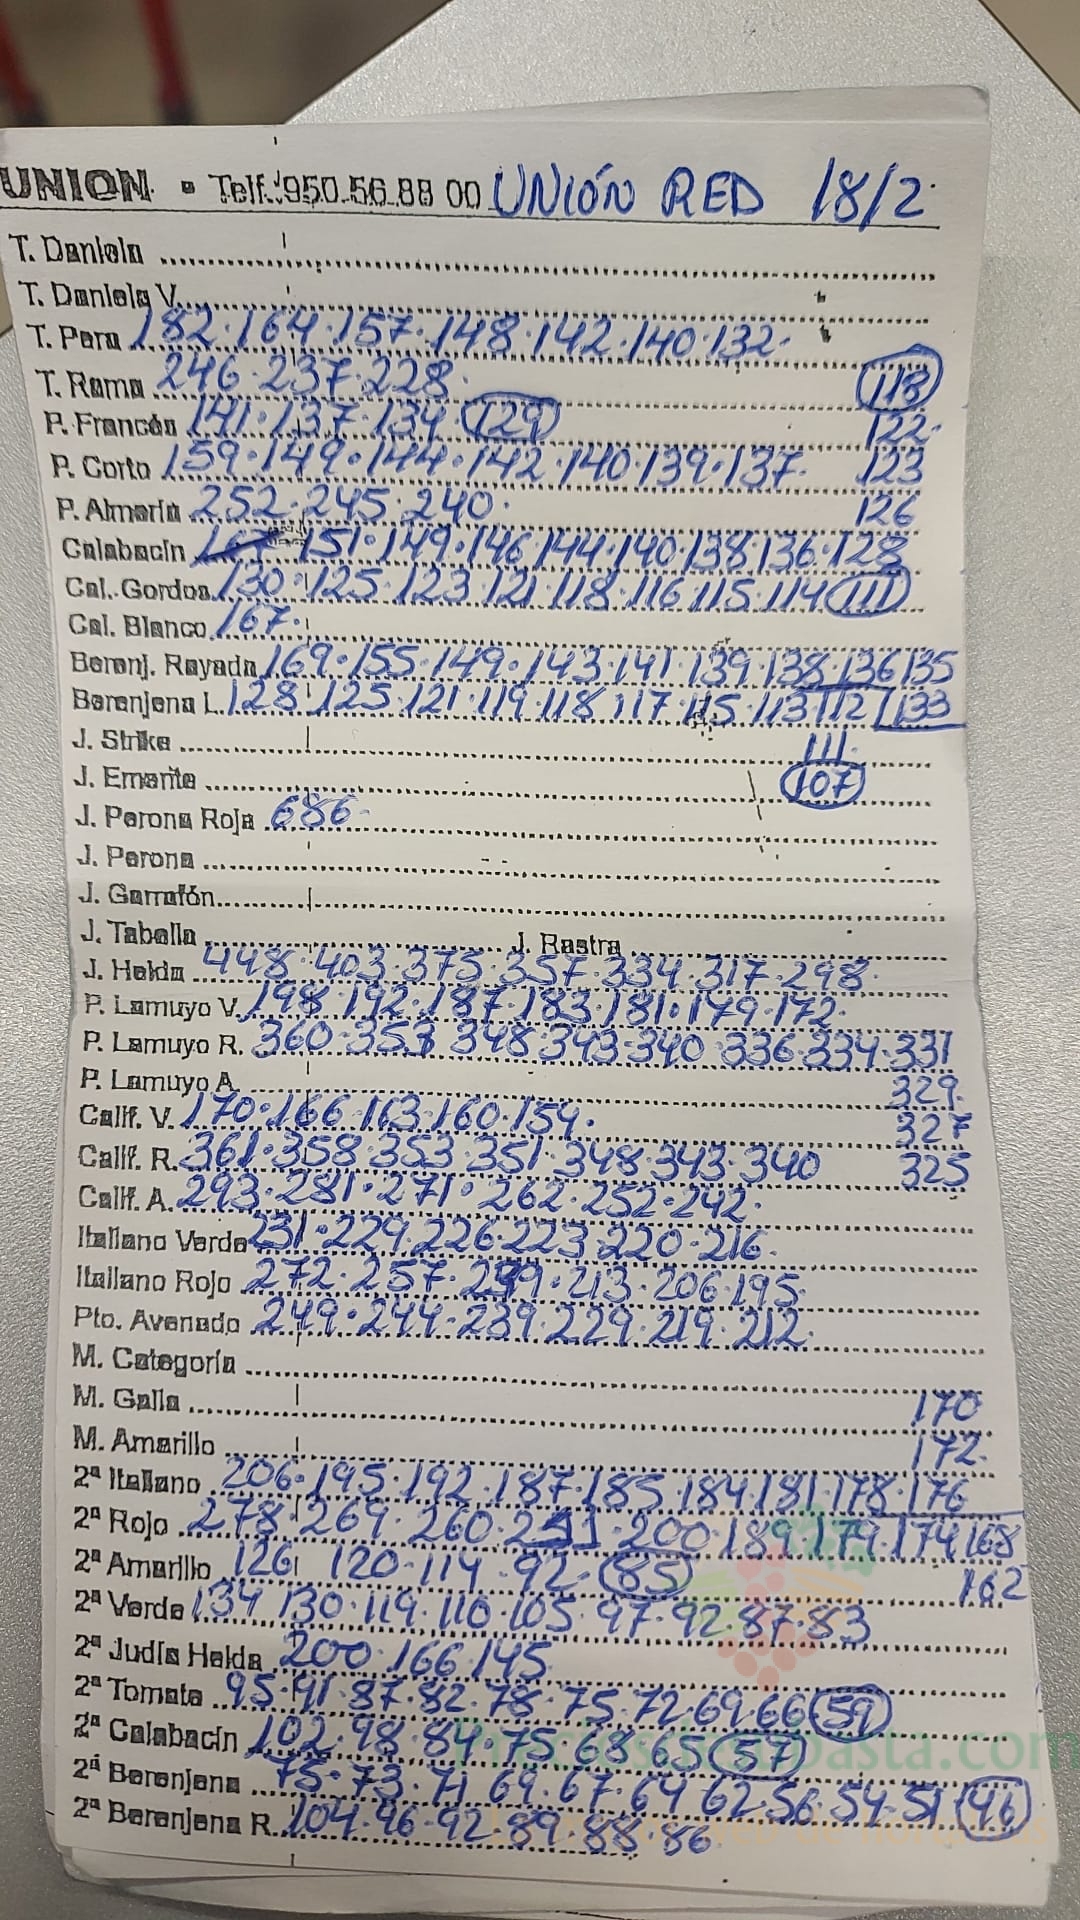 UNION • Telf. 950.56.88 00 UNIÓN RED 18/2
T. Daniela
T. Daniela V.
T. Pera 182·164·157·148·142·140·132·
T. Rama 246·237·228· 118
P. Francés 141·137·134 129 122·
P. Corto 159·149·144·142·140·139·137· 123
P. Almería 252·245·240· 126
Calabacín 151·149·146·144·140·138·136·128
Cal. Gordos 130·125·123·121·118·116·115·114 111
Cal. Blanco 167·
Berenj. Rayada 169·155·149·143·141·139·138·136 135
Berenjena L. 128·125·121·119·118·117·115·113 112 133
J. Strike 111·
J. Emerite 107
J. Perona Roja 686·
J. Perona
J. Garrafón
J. Tabella J. Rastra
J. Helda 448·403·375·357·334·317·298·
P. Lamuyo V. 198·192·187·183·181·179·172·
P. Lamuyo R. 360·353 348·343·340 336·334·331
P. Lamuyo A. 329·
Calif. V. 170·166 163·160·159· 327
Calif. R. 361·358·353·351·348·343·340 325
Calif. A. 293·281·271·262·252·242·
Italiano Verde 231·229·226·223·220·216·
Italiano Rojo 272·257· 213·206·195·
Pto. Avenado 249·244·239·229·219·212·
M. Categoría
M. Galia 170
M. Amarillo 172·
2ª Italiano 206·195·192·187·185·184·181·178·176
2ª Rojo 278·269·260· 200·189·179·174 168
2ª Amarillo 126 120·114·92· 85 162
2ª Verde 134 130·119·110·105·97·92·87·83
2ª Judía Helda 200·166·145
2ª Tomate 95·91·87·82·78·75·72·69·66 59
2ª Calabacín 102·98·84·75·68·65 57
2ª Berenjena 75·73·71·69·67·64·62·56·54·51 46
2ª Berenjena R. 104·96·92·89·88·86